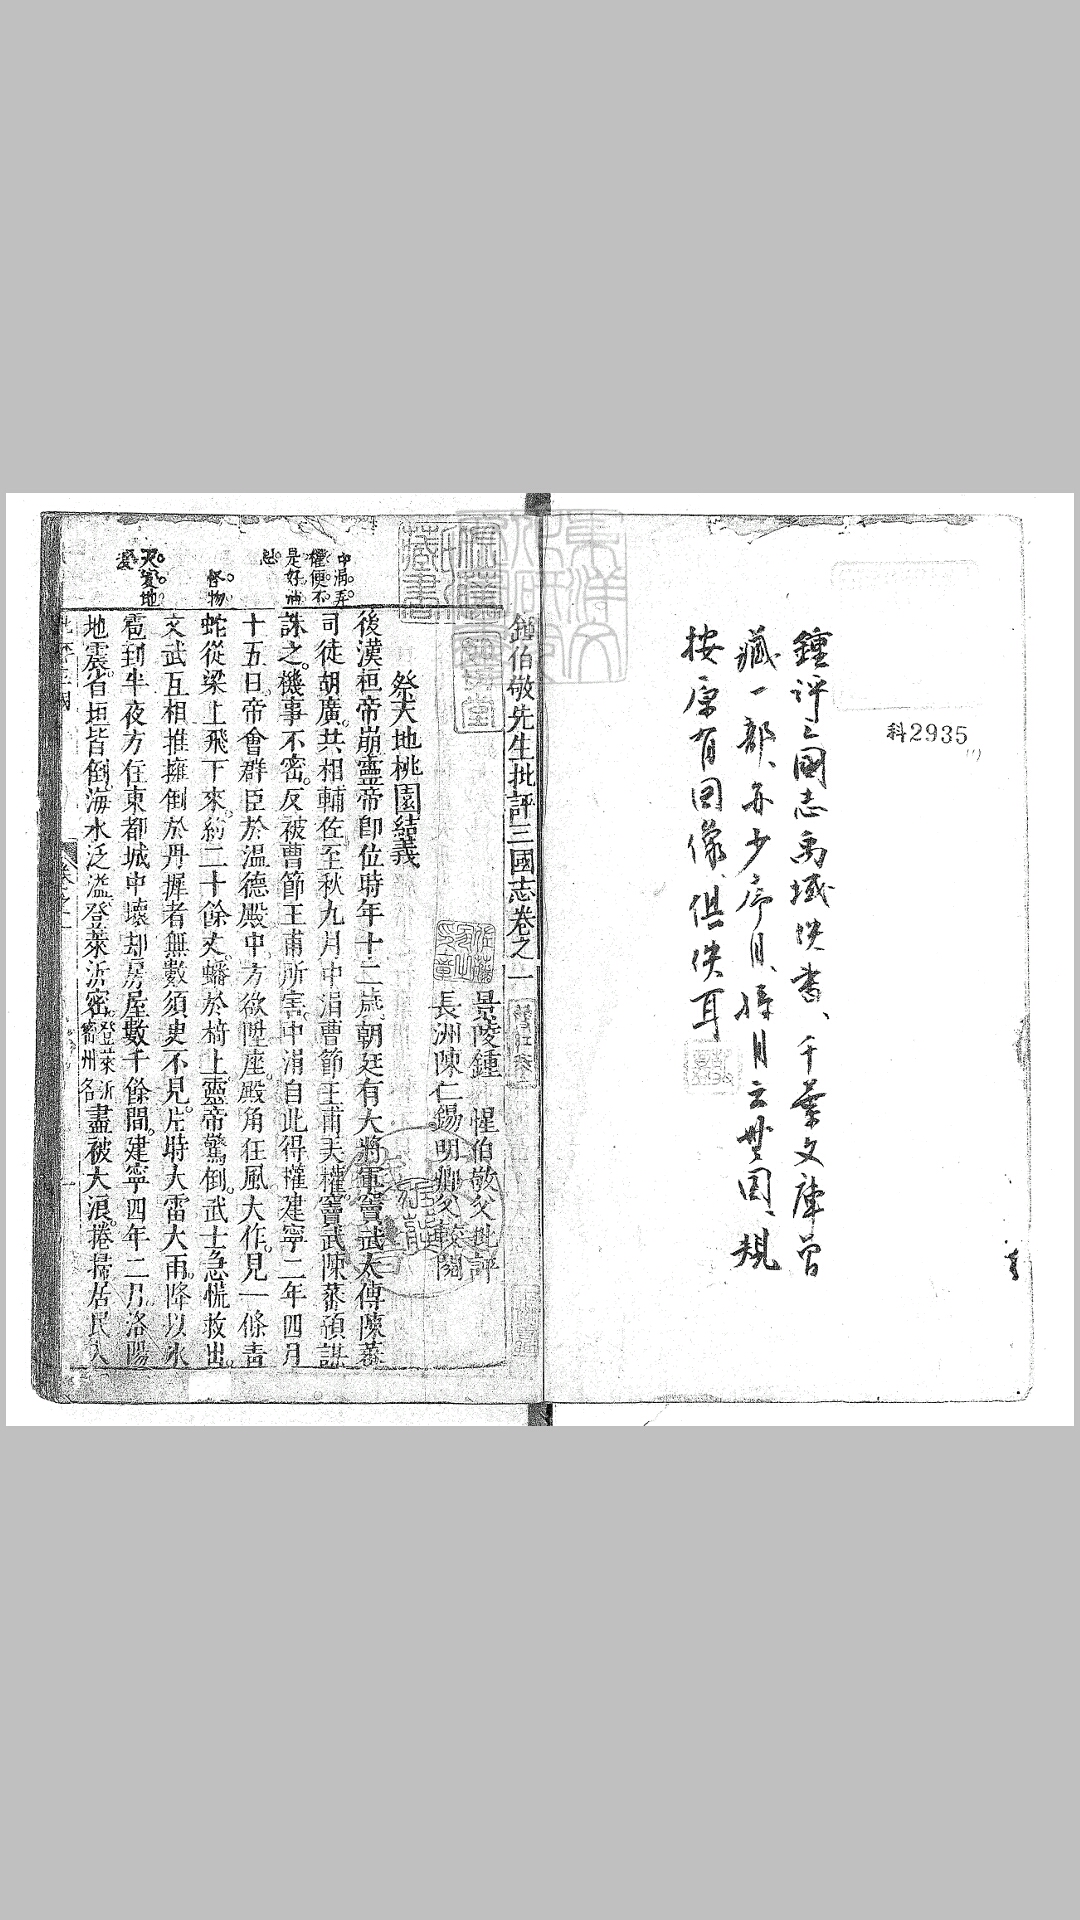 科2935
鍾評三國志禹域佚書、千葉文庫曾
藏一部、亦少序目、
按原有圖像、俱佚耳
鍾伯敬先生批評三國志卷之一
景陵鍾 惺伯敬父批評
長洲陳仁錫明卿父較閱
祭天地桃園結義
後漢桓帝崩靈帝卽位時年十二歲朝廷有大將軍竇武太傅陳蕃
司徒胡廣共相輔佐至秋九月中涓曹節王甫弄權竇武陳蕃預謀
誅之機事不密反被曹節王甫所害中涓自此得權建寧二年四月
十五日帝會群臣於溫德殿中方欲陞座殿角狂風大作見一條青
蛇從梁上飛下來約二十餘丈蟠於椅上靈帝驚倒武士急慌救出
文武互相推擁倒於丹墀者無數須臾不見片時大雷大雨降以冰
雹到半夜方住東都城中壞却房屋數千餘間建寧四年二月洛陽
地震省垣皆倒海水泛溢登萊沂密登萊沂密州名盡被大浪捲掃居民入
中涓弄
權便不
是好消
息
怪物
天變地
變
藏書